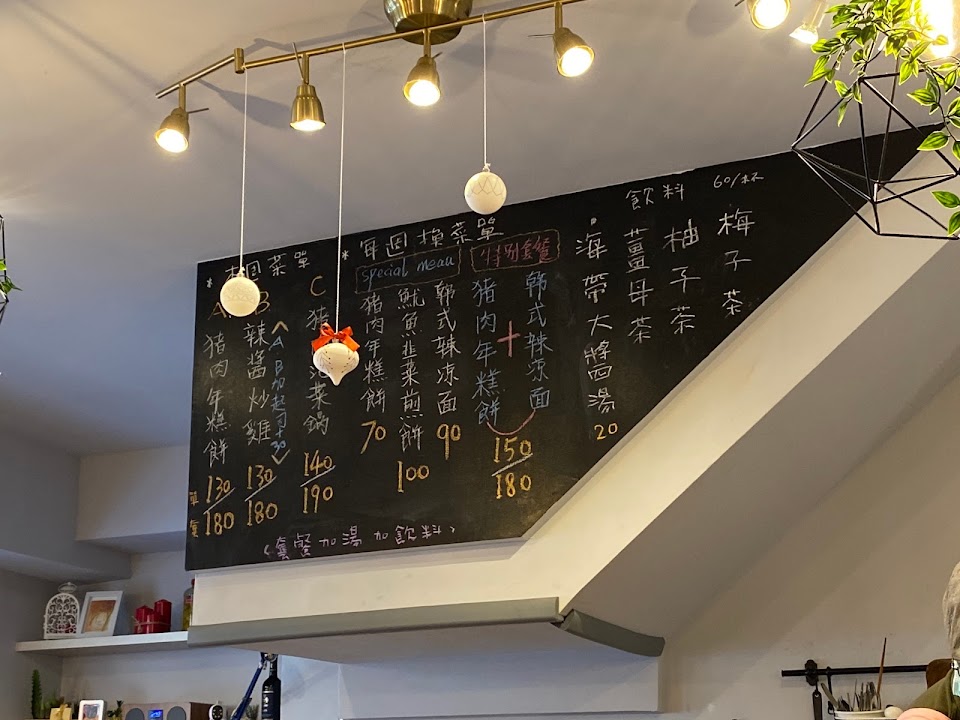 * 本週菜單
A
猪肉年糕餅
130/180
B
辣醬炒雞
130/180
<A.B加起司+30>
C
猪
菜鍋
140/190
單
套
* 每週換菜單
special menu
猪肉年糕餅
70
魷魚韭菜煎餅
100
韩式辣凉面
90
特别套餐
猪肉年糕餅
+
韩式辣凉面
150/180
海帶大醬湯
20
飲料 60/杯
薑母茶
柚子茶
梅子茶
(套餐加湯加飲料)